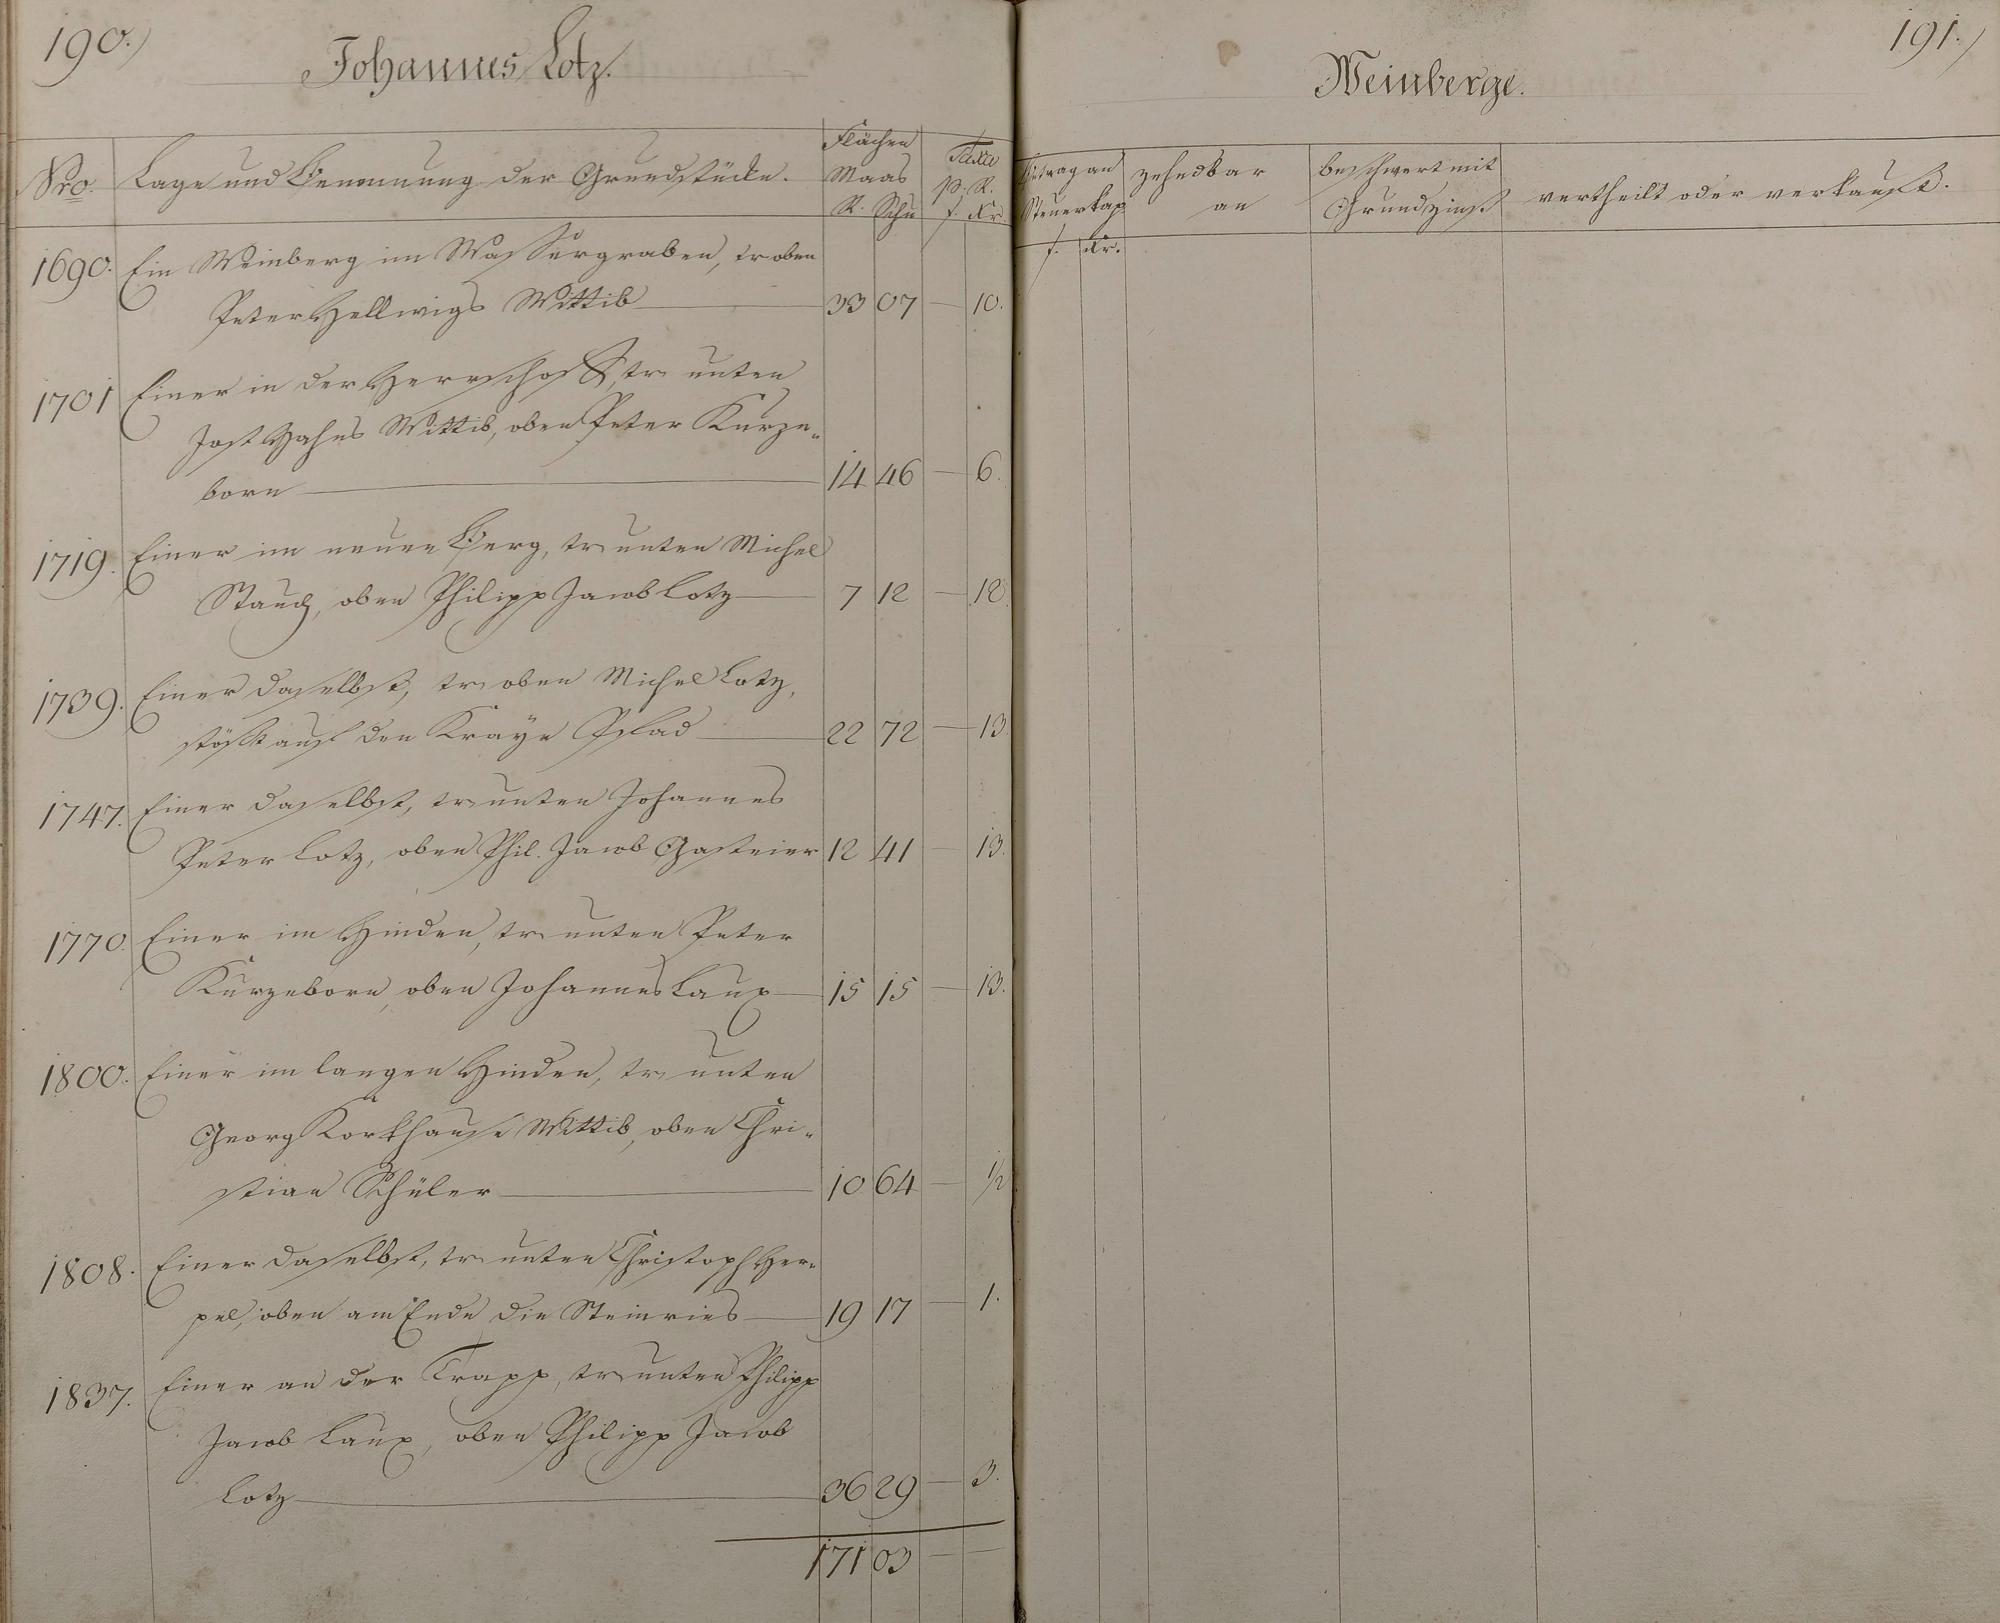 190.
Johannes Lotz.
Nro.
Lage und Benennung der Grundstücke.
Flächen
Maas
R. Schu
Taxe
p. R.
f. Kr.
1690. Ein Weinberg im Wassergraben, tr oben
Peter Hellwigs Wittib 33 07 — 10.
1701 Einer in der Herrschaft, tr unten
Jost Hahns Wittib, oben Peter Kurze-
born 14 46 — 6.
1719. Einer im neuen Berg, tr unten Michel
Stauch, oben Philipp Jacob Lotz 7 12 — 12.
1739. Einer daselbst, tr oben Michel Lotz,
stößt auf den Kraye Pfad 22 72 — 13.
1747. Einer daselbst, tr unten Johannes
Peter Lotz, oben Phil. Jacob Gasteier 12 41 — 13.
1770. Einer im Hinden, tr unten Peter
Kurzeborn, oben Johannes Laux 15 15 — 13.
1800. Einer im langen Hinden, tr unten
Georg Korkhause Wittib, oben Chri-
stian Schüler 10 64 — 1/2
1808. Einer daselbst, tr unten Christoph Her-
pel, oben am Ende die Steinries 19 17 — 1.
1837. Einer an der Trapp, tr unten Philipp
Jacob Laux, oben Philipp Jacob
Lotz 36 29 — 3.
171 03 — —
191.
Weinberge.
Betrag an
Steuerkap
f. Kr.
zehndbar
an
beschwert mit
Grundzinß
vertheilt oder verkauft.